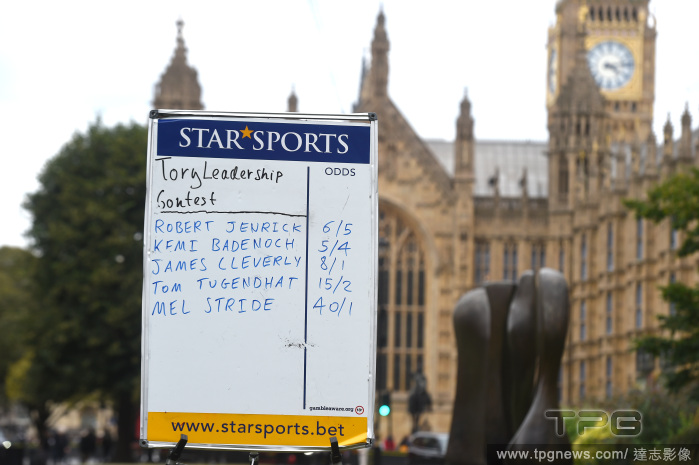 STAR★SPORTS
Tory Leadership
Contest
ODDS
ROBERT JENRICK 6/5
KEMI BADENOCH 5/4
JAMES CLEVERLY 8/1
TOM TUGENDHAT 15/2
MEL STRIDE 40/1
gambleaware.org
www.starsports.bet
TPG
www.tpgnews.com/ 達志影像